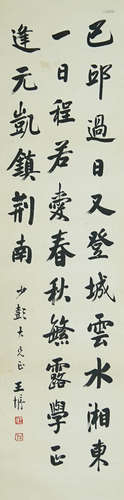 己邱過日又登城雲水湘東
一日程若愛春秋繁露學正
逢元凱鎮荊南
少彭大兄正 王